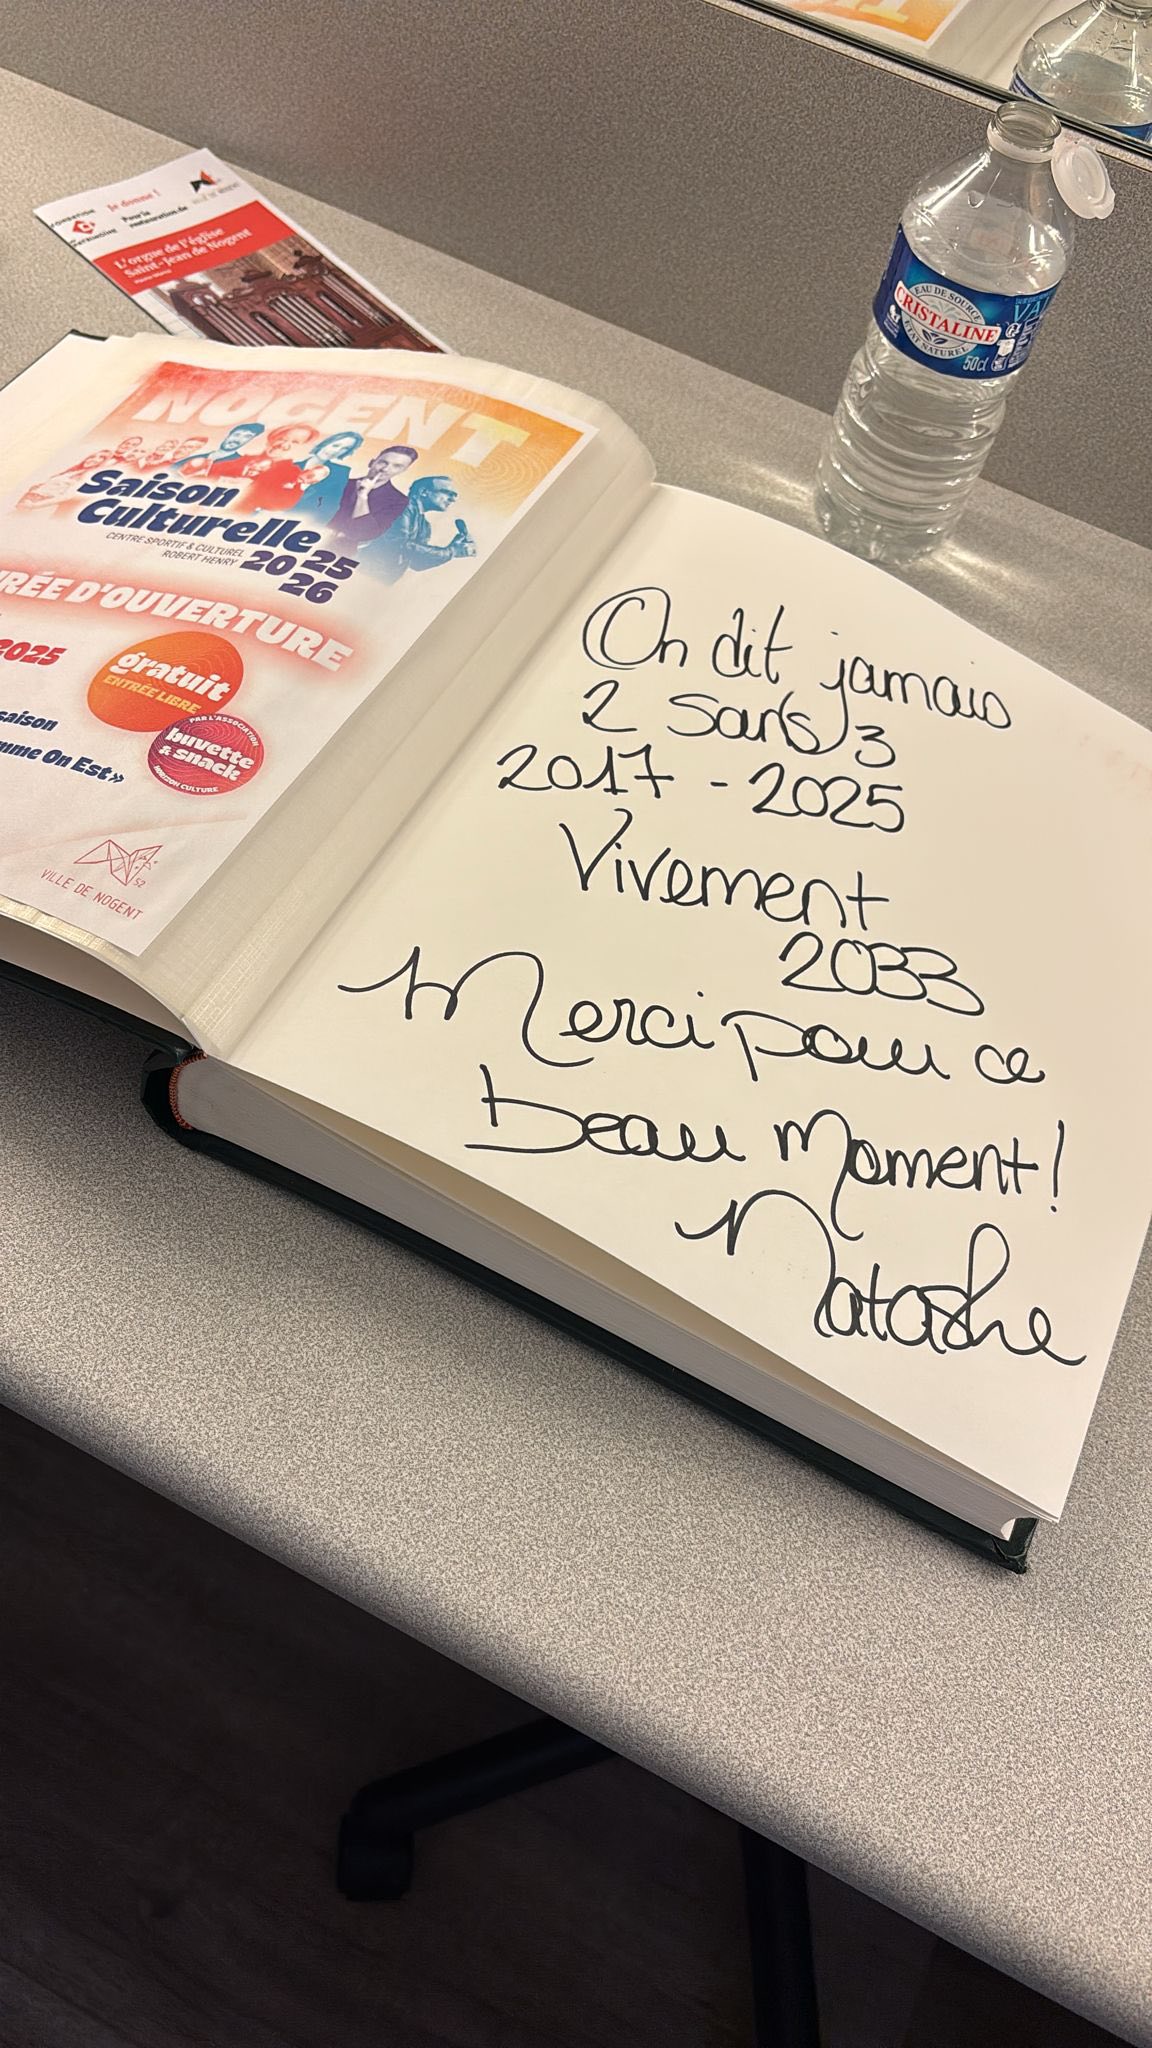 Je donne !
Pour la
restauration de
L'orgue de l'église
Saint-Jean de Nogent
NOGENT
Saison
Culturelle
CENTRE SPORTIF & CULTUREL
ROBERT HENRY
2025
26
D'OUVERTURE
2025
gratuit
ENTRÉE LIBRE
saison
On Est»
PAR L'ASSOCIATION
buvette
& snack
HORIZON CULTURE
52
VILLE DE NOGENT
EAU DE SOURCE
CRISTALINE
50cl
On dit jamais
2 sans 3
2017 - 2025
Vivement
2033
Merci pour ce
beau moment !
Natasha